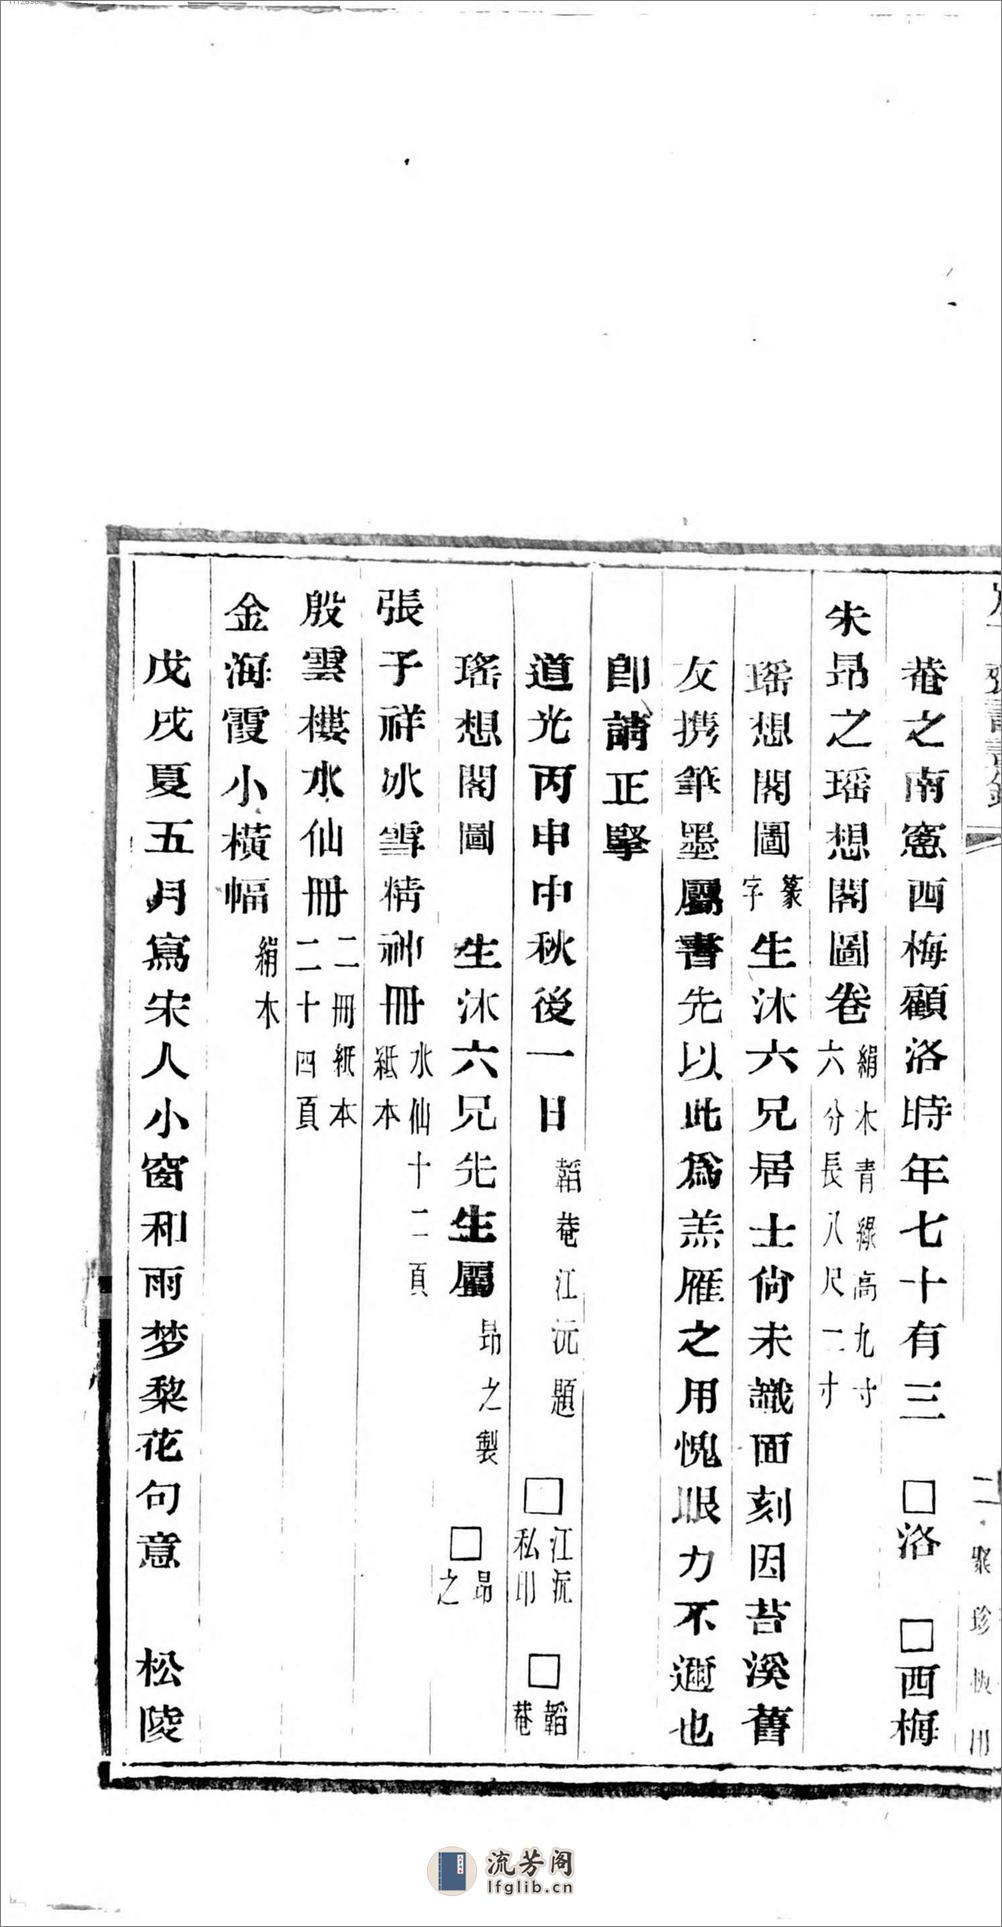 菴之南窻西梅顧洛時年七十有三 □洛 □西梅
朱昂之瑶想閣圖卷 絹本青綠高九寸六分長八尺二寸
瑶想閣圖 篆字 生沐六兄居士尙未識面刻因苕溪舊
友携筆墨屬書先以此爲羔雁之用愧眼力不邇也
卽請正擥
道光丙申中秋後一日 韜菴江沅題 □江沅私印 □韜菴
瑤想閣圖 生沐六兄先生屬 昂之製 □昂之
張子祥冰雪精神冊 水仙十二頁紙本
殷雲樓水仙冊 二冊紙本二十四頁
金海霞小橫幅 絹本
戊戌夏五月寫宋人小窗和雨梦棃花句意 松陵
二 聚珍
流芳阁
lfglib.cn